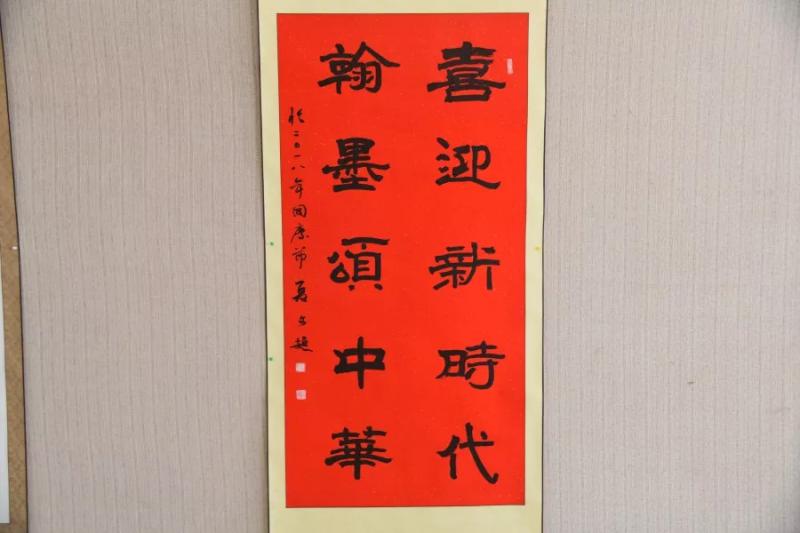 喜迎新時代
翰墨頌中華
於二〇一八年国慶節 夏文超